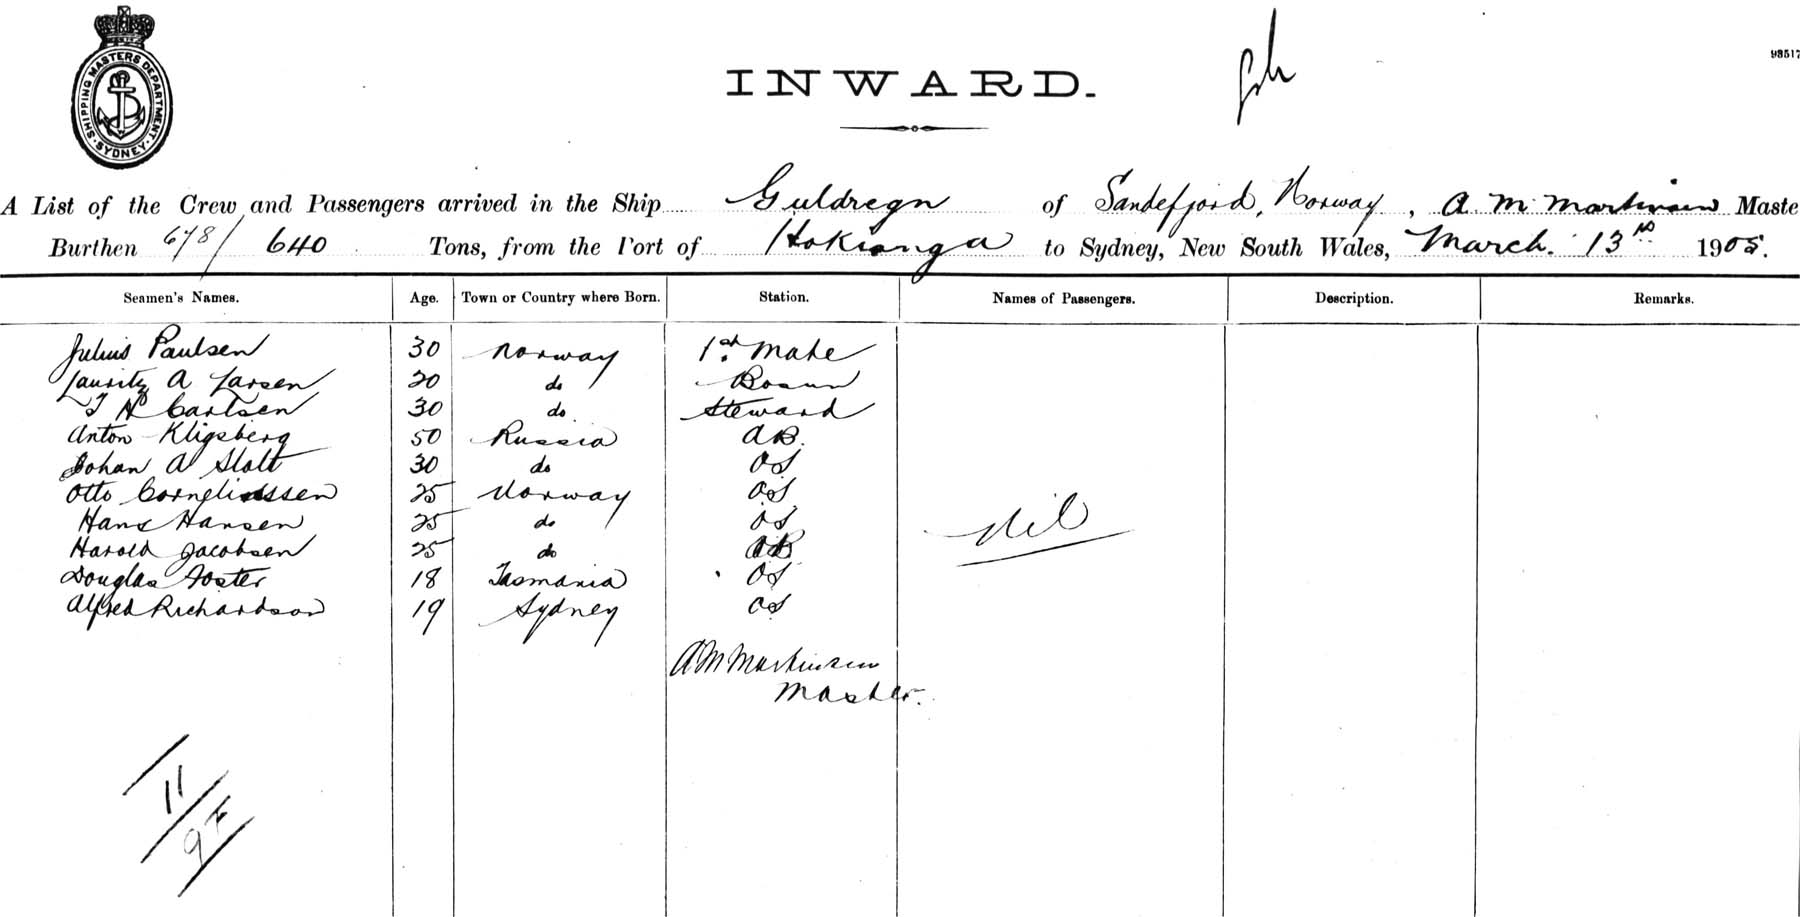 SHIPPING MASTERS DEPARTMENT
SYDNEY
INWARD.
93517
A List of the Crew and Passengers arrived in the Ship Guldregn of Sandefjord, Norway, A. M. Martinsen Maste
Burthen 678/640 Tons, from the Port of Hokianga to Sydney, New South Wales, March. 13th 1905.
Seamen's Names. Age. Town or Country where Born. Station. Names of Passengers. Description. Remarks.
Julius Paulsen 30 Norway 1st Mate
Lauritz A Larsen 20 do Bosun
T H Carlsen 30 do Steward
Anton Kligsberg 50 Russia AB.
Johan A Slatt 30 do OS
Otto Corneliussen 25 Norway OS
Hans Hansen 25 do OS
Nil
Harold Jacobsen 25 do AB
Douglas Foster 18 Tasmania OS
Alfred Richardson 19 Sydney OS
A M Martinsen
Master.
11
9F